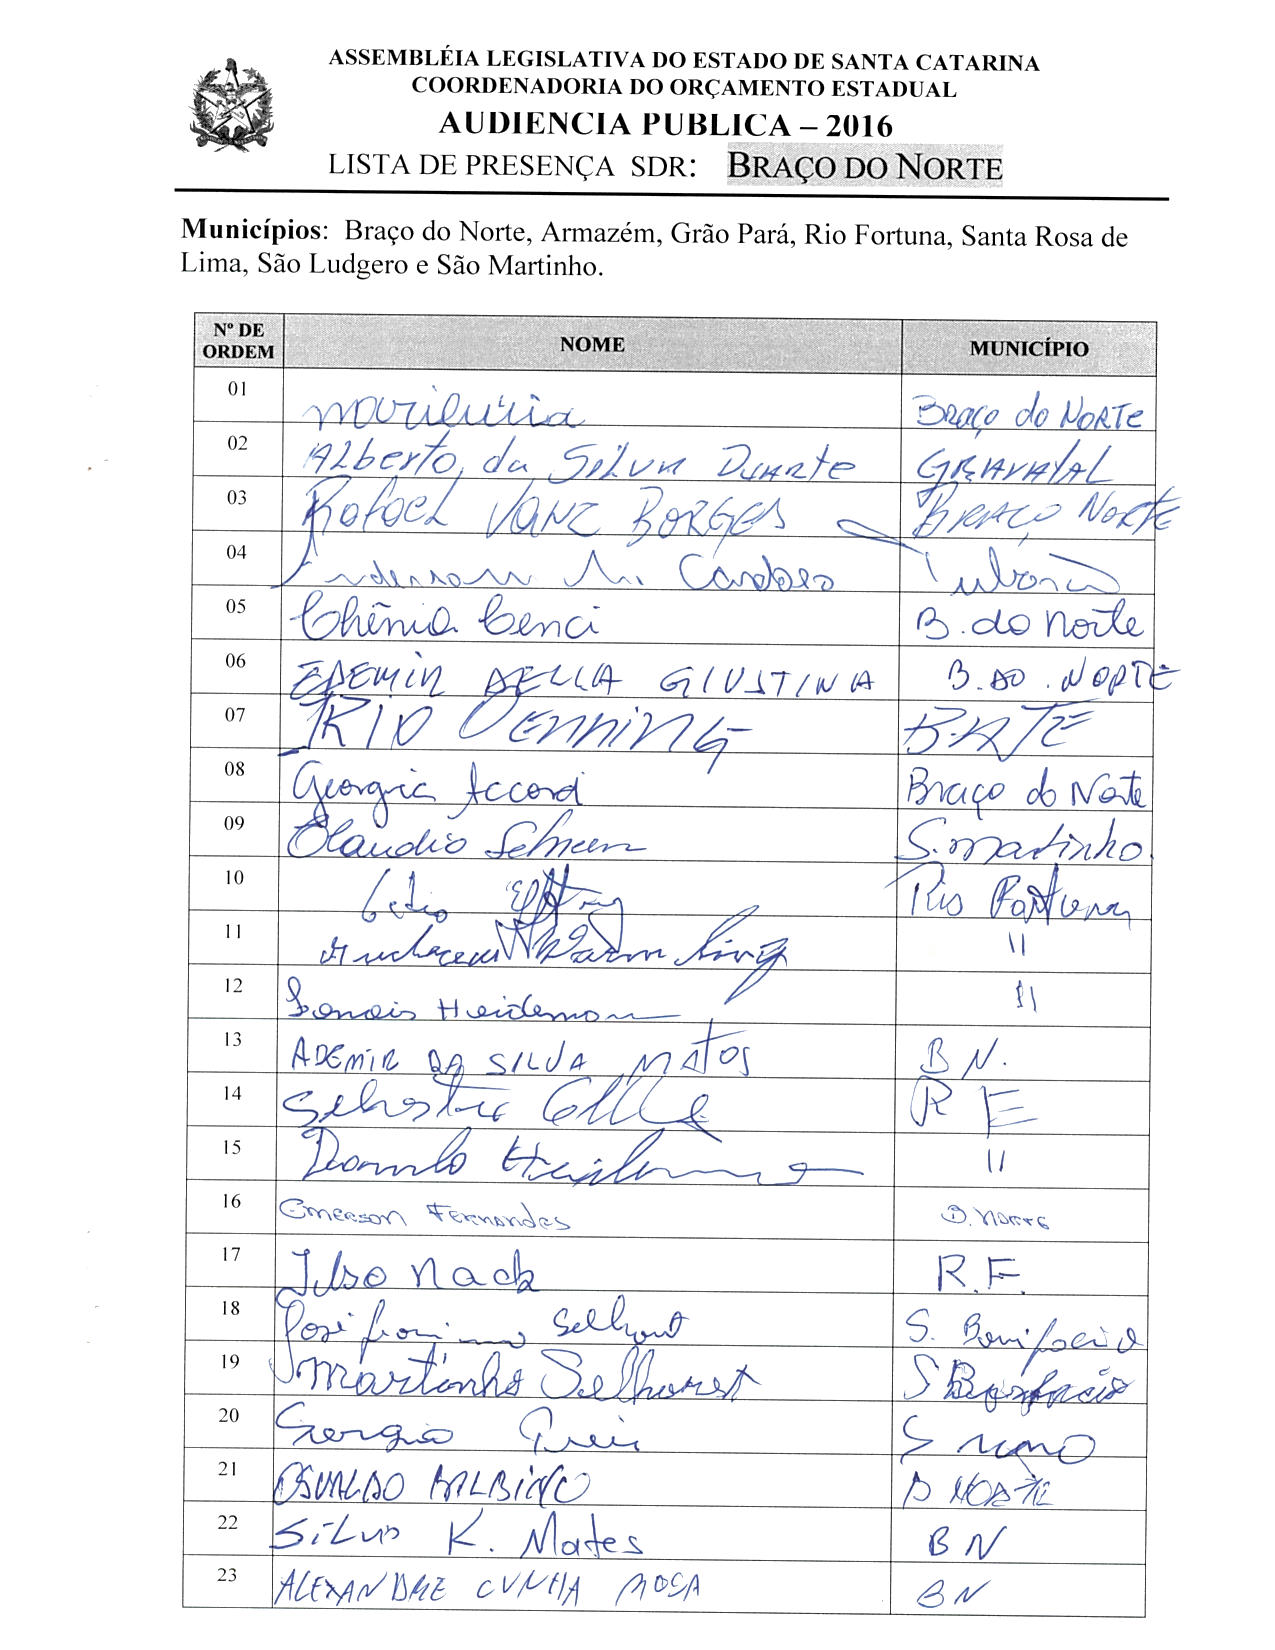 ASSEMBLÉIA LEGISLATIVA DO ESTADO DE SANTA CATARINA
COORDENADORIA DO ORÇAMENTO ESTADUAL
AUDIENCIA PUBLICA – 2016
LISTA DE PRESENÇA SDR: BRAÇO DO NORTE
Municípios: Braço do Norte, Armazém, Grão Pará, Rio Fortuna, Santa Rosa de
Lima, São Ludgero e São Martinho.
Nº DE ORDEM NOME MUNICÍPIO
01 Braço do NORTE
02 Alberto da Silva Duarte GRAVATAL
03 Rafael VANZ BORGES BRAÇO NORTE
04 Anderson M. Cardoso Tubarão
05 Chênia Cenci B. do Norte
06 EDEMIR DELLA GIUSTINA B. DO. NORTE
07 IRIO
08 Georgia Accordi Braço do Norte
09 Claudio S. Martinho.
10 Rio Fortuna
11 11
12 Heidemann 11
13 ADEMIR DA SILVA MATOS B N.
14 R
15 Danilo 11
16 Emerson Fernandes B. Norte
17 Ilso Nack R.F.
18 José S. Bonifacio
19 Martinho Selhorst S Bonifacio
20 Sergio
21 OSVALDO BALBINO B NORTE
22 Silvio K. Mates BN
23 ALEXANDRE CUNHA BN